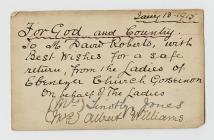 Jany 18-1915
For God and Country
To Mr David Roberts, with
Best Wishes for a safe
return, from the Ladies of
Ebenezer Church
On behalf of the Ladies
Timothy Jones
Albert Williams